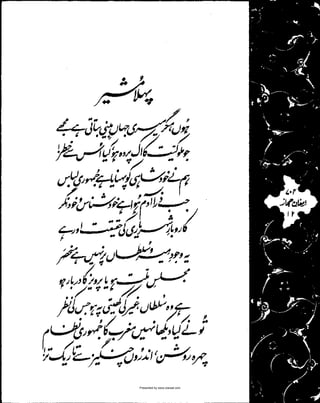 پہلا مُشیر
ہوں، مگر میری جہاں بینی بتاتی ہے مجھے
جو ملوکیت کا اک پردہ ہو، کیا اُس سے خطر!
ہم نے خود شاہی کو پہنایا ہے جمہوری لباس
جب ذرا آدم ہوا ہے خود شناس و خود نگر
کاروبارِ شہریاری کی حقیقت اور ہے
یہ وجودِ میر و سلطاں پر نہیں ہے منحصر
مجلسِ ملّت ہو یا پرویز کا دربار ہو
ہے وہ سلطاں، غیر کی کھیتی پہ ہو جس کی نظر
تُو نے کیا دیکھا نہیں مغرب کا جمہوری نظام
چہرہ روشن، اندروں چنگیز سے تاریک تر!
ارمغانِ حجاز
۱۲
Presented by www.iqbalel.com